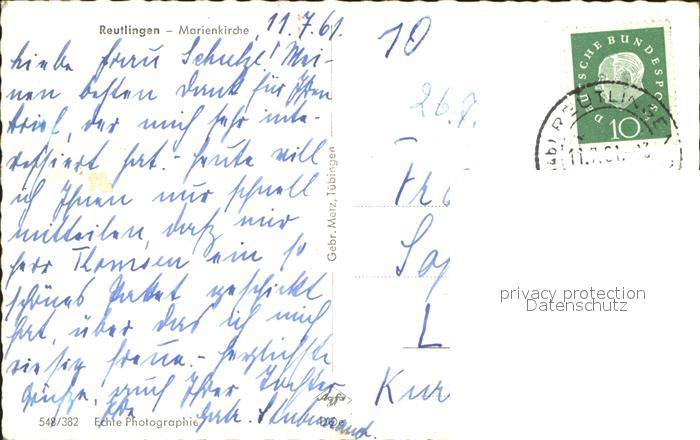 Reutlingen – Marienkirche
11.7.61.
Liebe Frau Schulze! Mei-
nen besten Dank für Ihren
Brief, der mich sehr inte-
ressiert hat. - Heute will
ich Ihnen nur schnell
mitteilen, daß mir
Herr Thomsen ein so
schönes Paket geschickt
hat, über das ich mich
riesig freue. - Herzlichste
Grüße, auch Ihrer Tochter
Ihre
548/382 Echte Photographie
Gebr. Metz, Tübingen
Agfa
10
26.7.
Fr
L
Kur
DEUTSCHE BUNDESPOST
10
REUTLINGEN
11.7.61.
privacy protection
Datenschutz